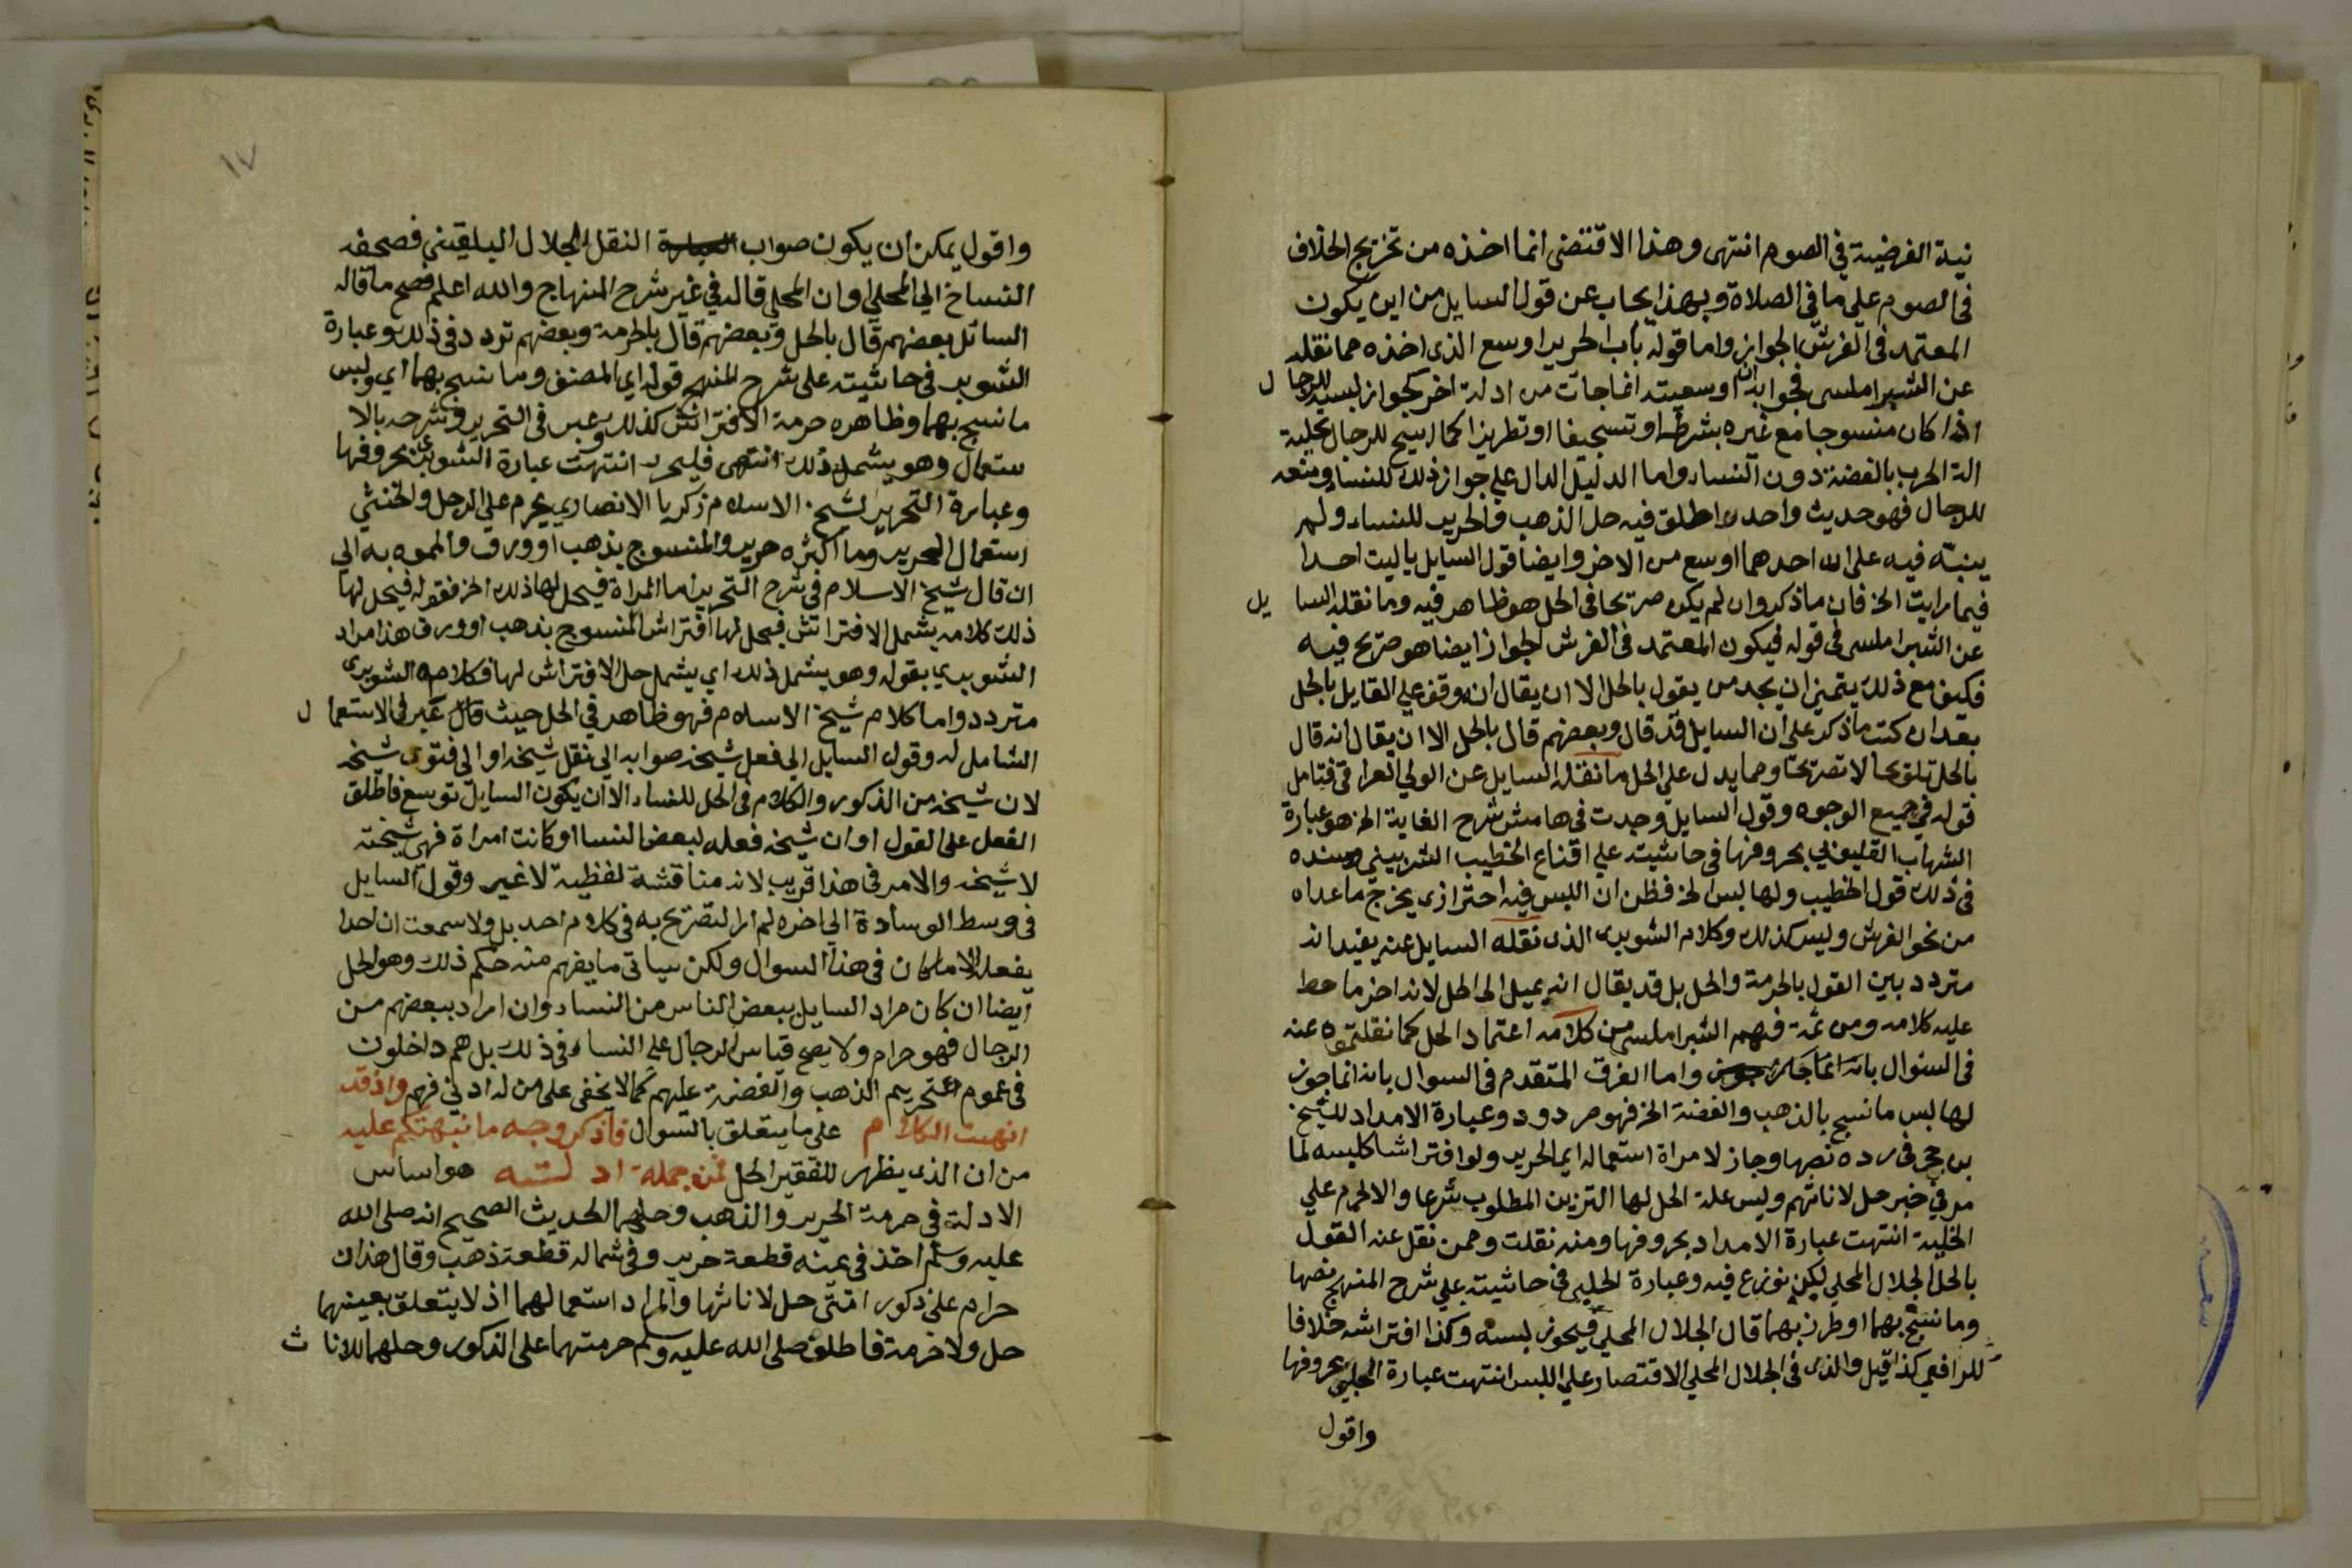 نية الفرضية في الصوم انتهى وهذا الاقتضى انما اخذه من تخريج الخلاف
في الصوم على ما في الصلاة وبهذا يجاب عن قول السايل من اين يكون
المعتمد في الفرش الجواز واما قوله باب الحرير اوسع الذي اخذه مما نقله
عن الشبراملسى فجوابه ان اوسعيته انما جات من ادلة اخر كجواز لبسه للرجال
اذا كان منسوجا مع غيره بشرطه او تسجيفا او تطريزا كما ابيح للرجال تحلية
الة الحرب بالفضة دون النساء واما الدليل الدال على جواز ذلك للنسا ومنعه
للرجال فهو حديث واحد اطلق فيه حل الذهب والحرير للنساء ولم
ينبه فيه على ان احدهما اوسع من الاخر وايضا قول السايل ياليت احدا
فيما رايت الخ فان ما ذكر وان لم يكن صريحا في الحل هو ظاهر فيه وما نقله السايل
عن الشبراملسى في قوله فيكون المعتمد في الفرش الجواز ايضا هو صريح فيه
فكيف مع ذلك يتمنى ان يجد من يقول بالحل الا ان يقال انه وقف على القايل بالحل
بعد ان كتب ما ذكر على ان السايل قد قال وبعضهم قال بالحل الا ان يقال انه قال
بالحل تلويحا لا تصريحا ومما يدل على الحل ما نقله السايل عن الولي العراقي فتامل
قوله في جميع الوجوه وقول السايل وجدت في هامش شرح الغاية الخ هو عبارة
الشهاب القليوبي بحروفها في حاشيته على اقناع الخطيب الشربيني وسنده
في ذلك قول الخطيب ولها لبس الخ فظن ان اللبس فيه احترازي يخرج ما عداه
من نحو الفرش وليس كذلك وكلام الشوبرى الذي نقله السايل عنه يفيد انه
متردد بين القول بالحرمة والحل بل قد يقال انه يميل الى الحل لانه اخر ما حط
عليه كلامه ومن ثمة فهم الشبراملسى من كلامه اعتماد الحل كما نقلتموه عنه
في السئوال بانه انما واما الفرق المتقدم في السوال بانه انما جوز
لها لبس ما نسج بالذهب والفضة الخ فهو مردود وعبارة الامداد للشيخ
بن حجر في رده نصها وجاز لامراة استعماله اي الحرير ولو افتراشا كلبسه لما
مر في خبر حل لاناثهم وليس علة الحل لها التزين المطلوب شرعا والا لحرم على
الخلية انتهت عبارة الامداد بحروفها ومنه نقلت وممن نقل عنه القول
بالحل الجلال المحلي لكن نوزع فيه وعبارة الحلبي في حاشيته على شرح المنهج نصها
وما نسج بهما او طرز بهما قال الجلال المحلي فيجوز لبسه وكذا افتراشه خلافا
للرافعي كذا قيل والذي في الجلال المحلي الاقتصار على اللبس انتهت عبارة الحلبي بحروفها
واقول
١٧
واقول يمكن ان يكون صواب النقل الجلال البلقيني فصحفه
النساخ الي المحلي او ان المحلي قاله في غير شرح المنهاج والله اعلم فصح ما قاله
السائل بعضهم قال بالحل وبعضهم قال بالحرمة وبعضهم تردد في ذلك وعبارة
الشوبرى في حاشيته على شرح المنهج قوله اي المصنف وما نسج بهما اي ولبس
ما نسج بهما وظاهره حرمة الافتراش كذلك وعبر في التحرير وشرحه بالا
ستعمال وهو يشمل ذلك انتهى فليحرر انتهت عبارة الشوبرى بحروفها
وعبارة التحرير لشيخ الاسلام زكريا الانصاري يحرم على الرجل والخنثي
استعمال الحرير وما اكثره حرير والمنسوج بذهب او ورق والمموه به الي
ان قال شيخ الاسلام في شرح التحرير اما المراة فيحل لها ذلك الخ فقوله فيحل لها
ذلك كلامه يشمل الافتراش فيحل لها افتراش المنسوج بذهب او ورق هذا مراد
الشوبري بقوله وهو يشمل ذلك اي يشمل حل الافتراش لها فكلام الشوبرى
متردد واما كلام شيخ الاسلام فهو ظاهر في الحل حيث قال عبر في الاستعمال
الشامل له وقول السايل الي فعل شيخه صوابه الي نقل شيخه او الي فتوى شيخه
لان شيخه من الذكور والكلام في الحل للنساء الا ان يكون السايل توسع فاطلق
الفعل على القول او ان شيخه فعله لبعض النسا او كانت امراة فهي شيخته
لا شيخه والامر في هذا قريب لانه مناقشة لفظية لا غير وقول السايل
في وسط الوسادة الي اخره لم ار التصريح به في كلام احد بل ولا سمعت ان احدا
يفعله الا ما كان في هذا السوال ولكن سياتي ما يفهم منه حكم ذلك وهو الحل
ايضا ان كان مراد السايل ببعض الناس من النساء وان اراد ببعضهم من
الرجال فهو حرام ولا يصح قياس الرجال على النساء في ذلك بل هم داخلون
في عموم تحريم الذهب والفضة عليهم كما لا يخفى على من له ادني فهم واذ قد
انهيت الكلام على ما يتعلق بالسوال فاذكر وجه ما نبهتكم عليه
من ان الذي يظهر للفقير الحل فمن جملة ادلته هو اساس
الادلة في حرمة الحرير والذهب وحلهما الحديث الصحيح انه صلى الله
عليه وسلم اخذ في يمينه قطعة حرير وفي شماله قطعة ذهب وقال هذان
حرام على ذكور امتى حل لاناثها والمراد استعمالهما اذ لا يتعلق بعينهما
حل ولا حرمة فاطلق صلى الله عليه وسلم حرمتهما على الذكور وحلهما للاناث